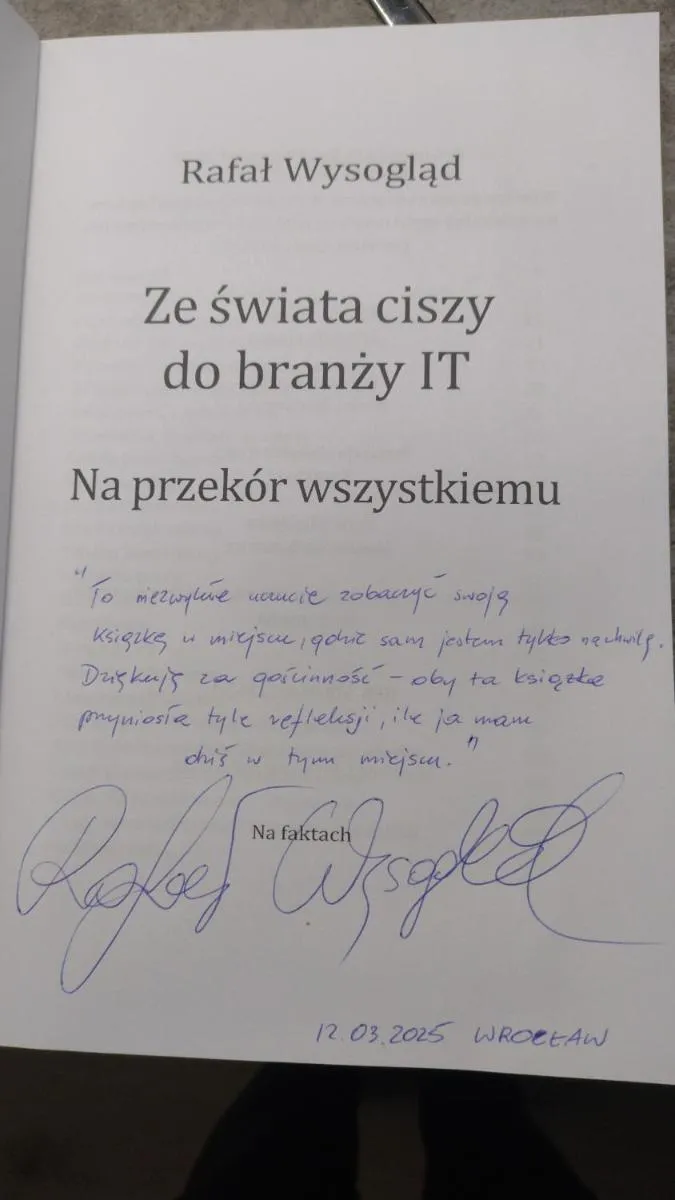 Rafał Wysogląd
Ze świata ciszy
do branży IT
Na przekór wszystkiemu
"To niezwykłe uczucie zobaczyć swoją
książkę w miejscu, gdzie sam jestem tylko na chwilę.
Dziękuję za gościnność – oby ta książka
przyniosła tyle refleksji, ile ja mam
dziś w tym miejscu."
Na faktach
Rafał Wysogląd
12.03.2025 WROCŁAW